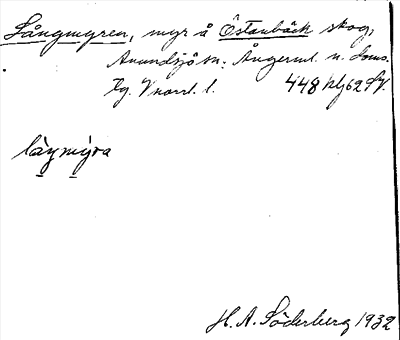 Långmyren, myr å Östanbäck skog,
Anundsjö sn. Ångerml. n. doms.
Tg. V norrl. l. 448 hlj 62 SV.
låŋmy̱ra
H. A. Söderberg 1932